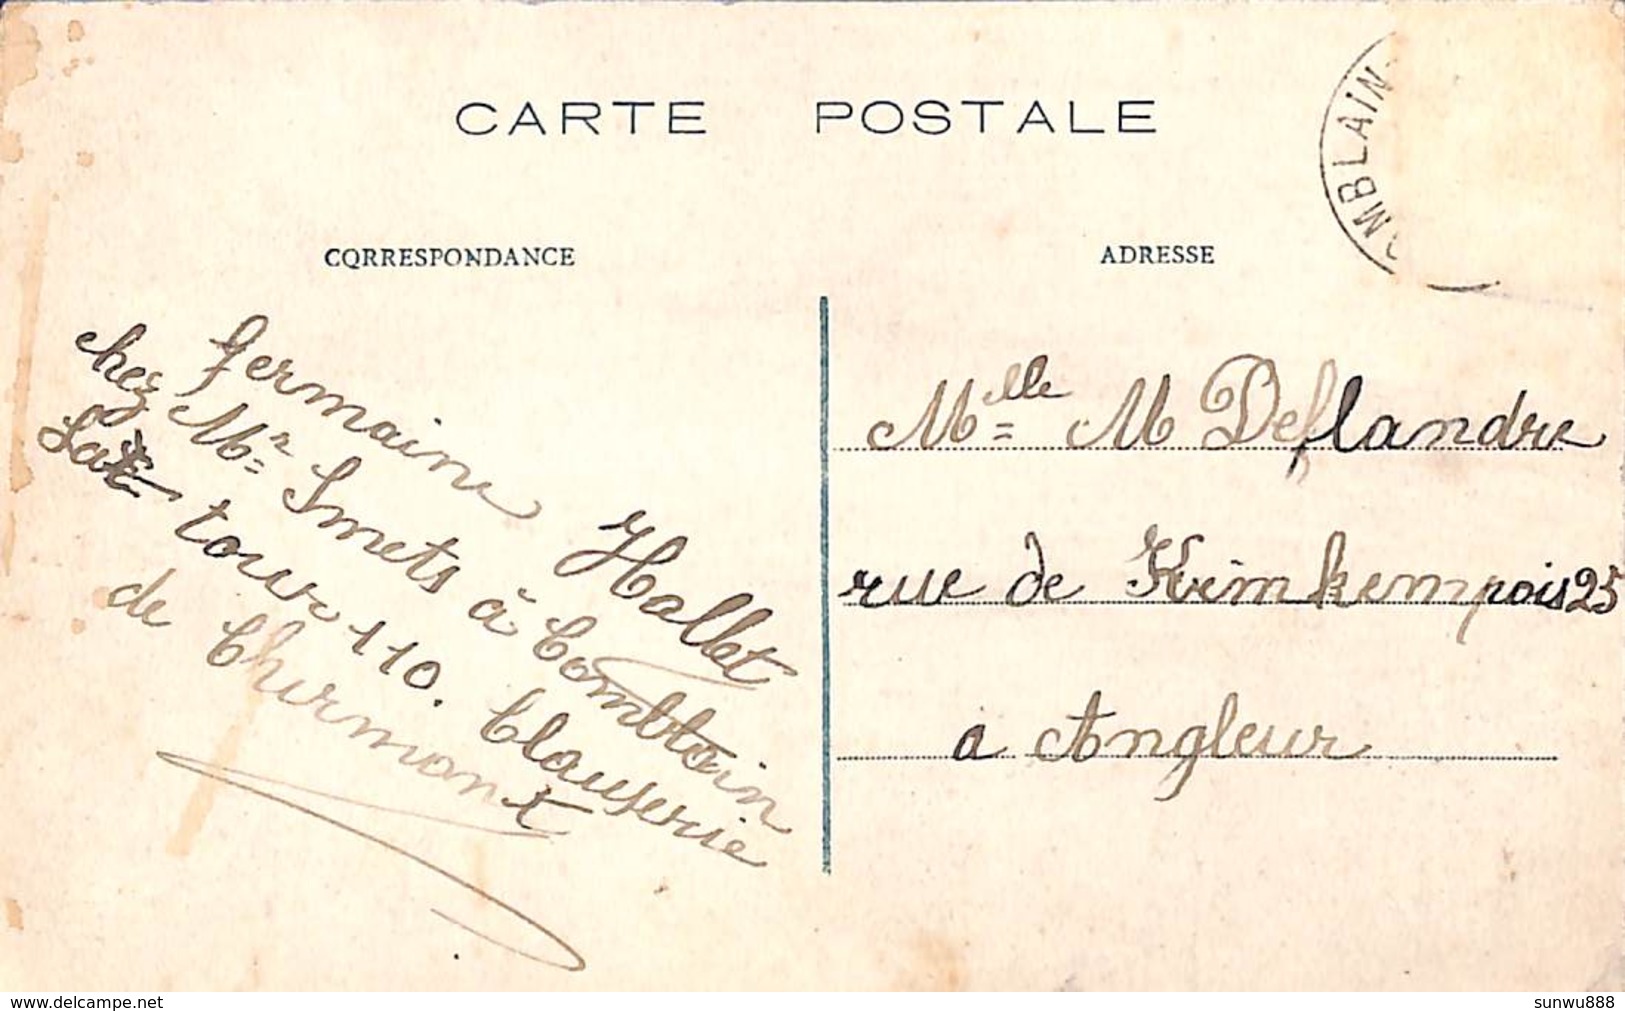 CARTE POSTALE
MBLAIN-
CORRESPONDANCE
ADRESSE
Germaine Hallet
chez Mr Smets à Comblain
La tour 110. Clauserie
de Chermont
Mlle M Deflandre
rue de Kimkempois 25
a Angleur
www.delcampe.net
sunwu888